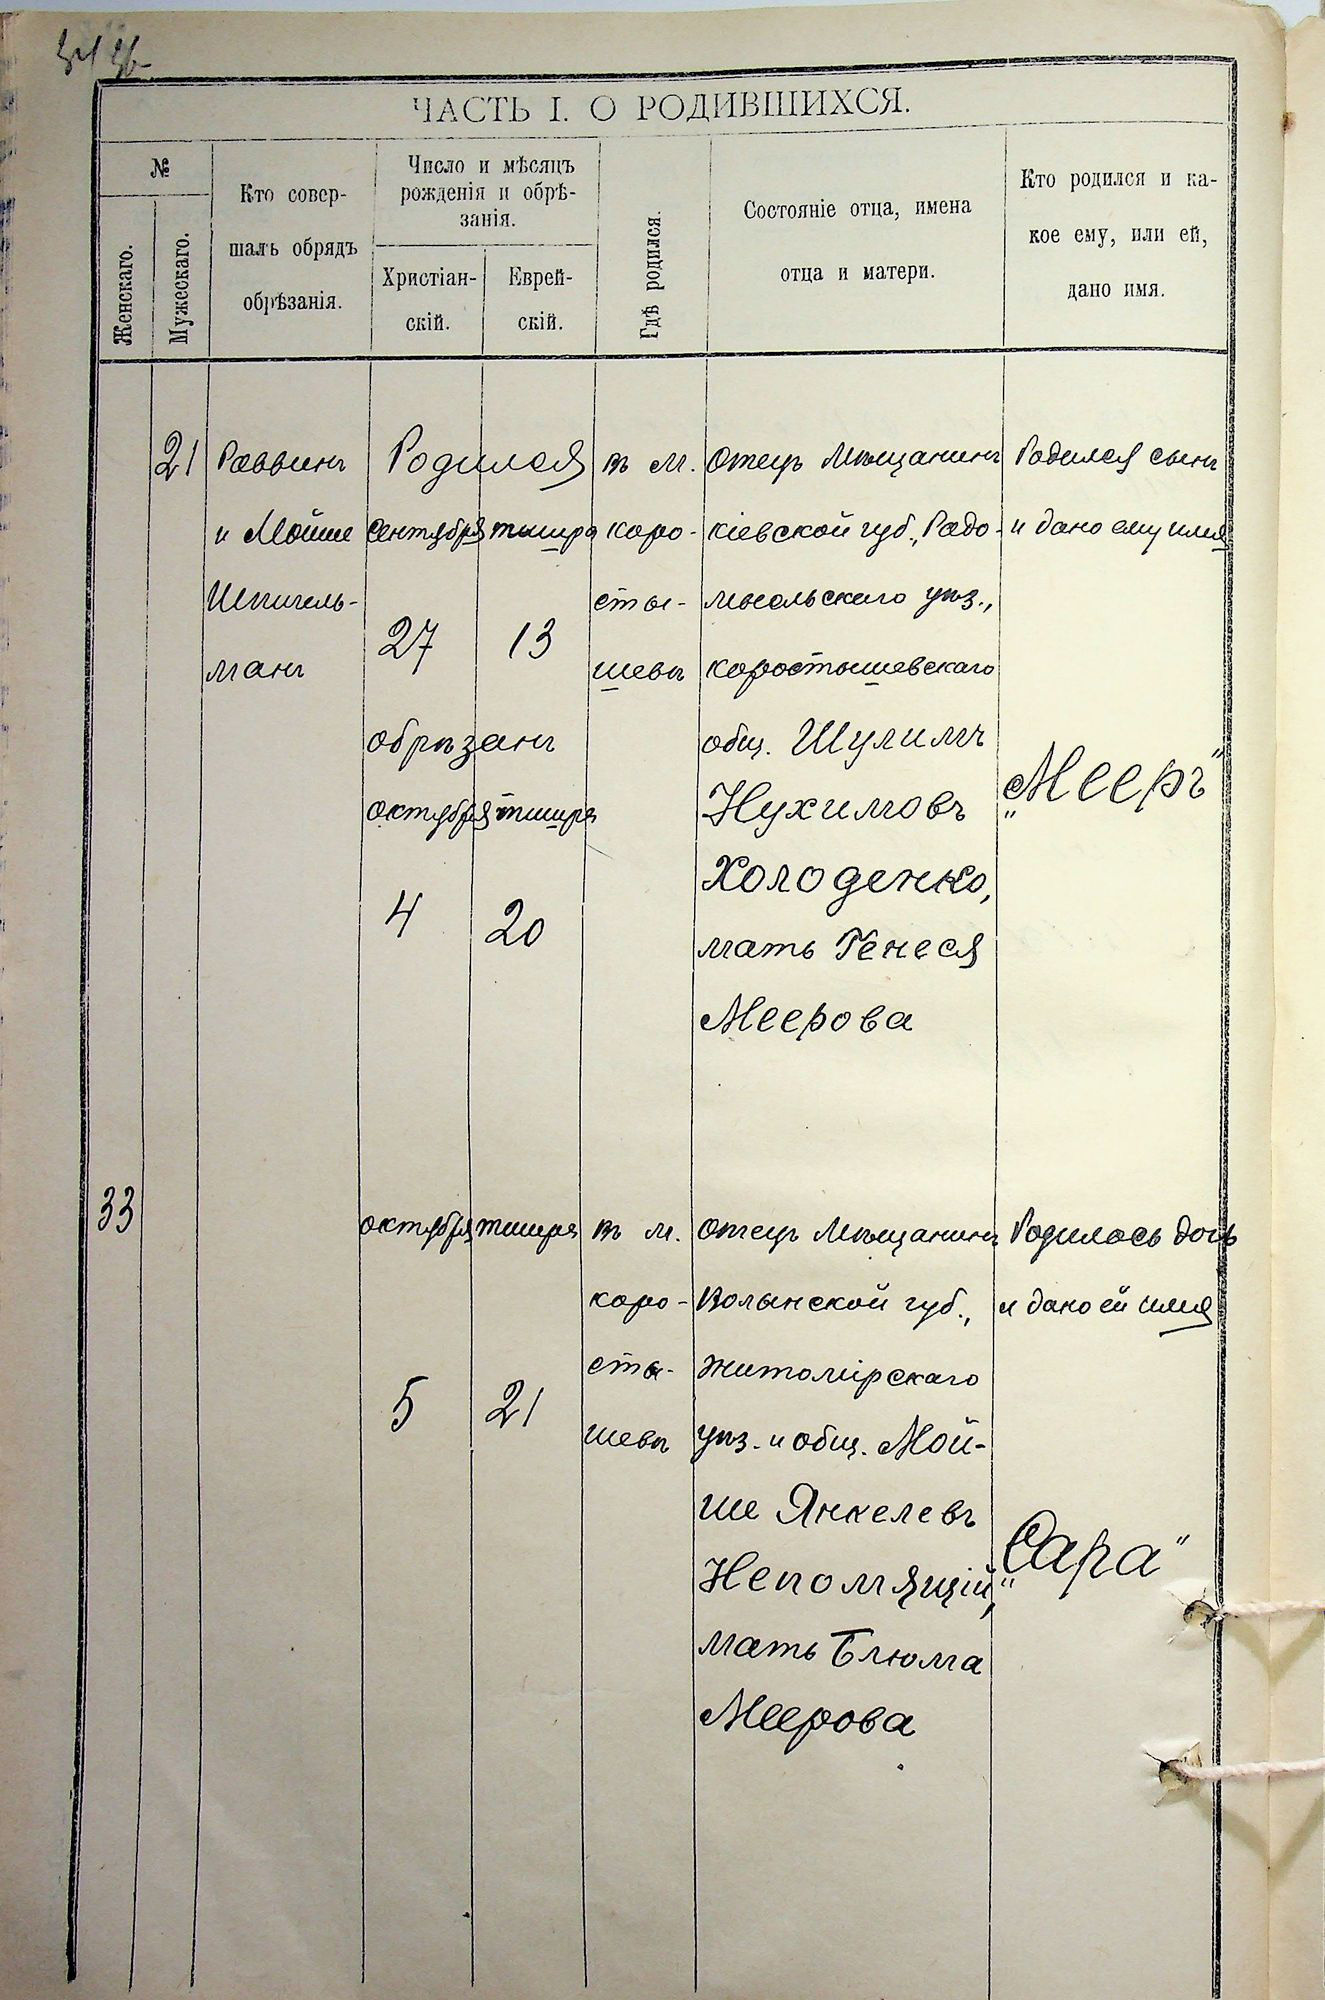 ЧАСТЬ I. О РОДИВШИХСЯ.
№
Женскаго.
Мужескаго.
Кто совер-
шалъ обрядъ
обрѣзанія.
Число и мѣсяцъ
рожденія и обрѣ-
занія.
Христіан-
скій.
Еврей-
скій.
Гдѣ родился.
Состояніе отца, имена
отца и матери.
Кто родился и ка-
кое ему, или ей,
дано имя.
21
Раввинъ
и Мойше
Шпигель-
манъ
Родился
сентября тишре
27 13
обрѣзанъ
октября тишре
4 20
въ м.
коро-
сты-
шевѣ
Отецъ Мѣщанинъ
кіевской губ., Радо-
мысльскаго уѣз.,
коростышевскаго
общ. Шулимъ
Нухимовъ
Холоденко,
мать Генеся
Меерова
Родился сынъ
и дано ему имя
„Мееръ"
33
октября тишре
5 21
въ м.
коро-
сты-
шевѣ
Отецъ Мѣщанинъ
Волынской губ.,
житомірскаго
уѣз. и общ. Мой-
ше Янкелевъ
Непомящій,
мать Блюма
Меерова
Родилась дочь
и дано ей имя
„Сара"